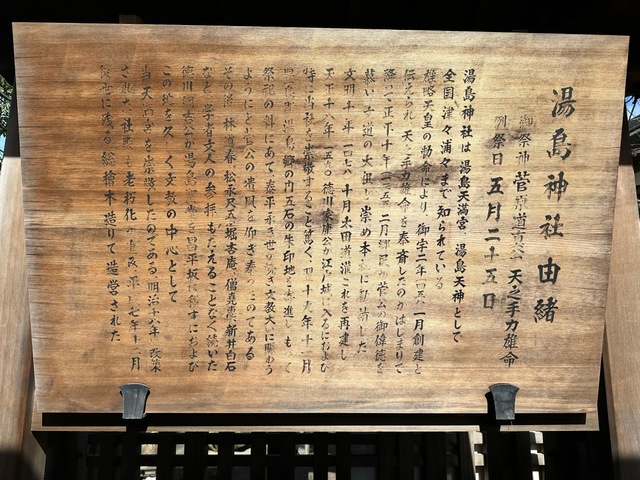 湯島神社由緒
御祭神 菅原道真公 天之手力雄命
例祭日 五月二十五日
湯島神社は 湯島天満宮 湯島天神として
全国津々浦々まで知られている
雄略天皇の勅命により 御宇二年 一月創建と
伝えられ 天之手力雄命を奉斎したのがはじまりで
降って正平十年 二月郷民が菅公の御偉徳を
慕い 文道の大祖と崇め本社に勧請した
文明十年 十月 太田道灌これを再建し
天正十八年 徳川家康公が江戸城に入るにおよび
特に当社を崇敬すること篤く 十九年十一月
湯島郷の内五石の朱印地を寄進し もって
祭祀の料にあて 泰平永き世が続き 文教大いに賑わう
ようにと菅公の遺風を仰ぎ奉ったのである
その後 林道春 松永尺五 堀杏庵 僧堯恵 新井白石
など 学者文人の参拝もたえることなく続いた
徳川綱吉公が湯島聖堂を昌平坂に移すにおよび
この地を久しく文教の中心として
当天満宮を崇敬したのである 明治十八年 改築
された社殿も老朽化 平成七年十二月
後世に残る 総檜木造りで造営された